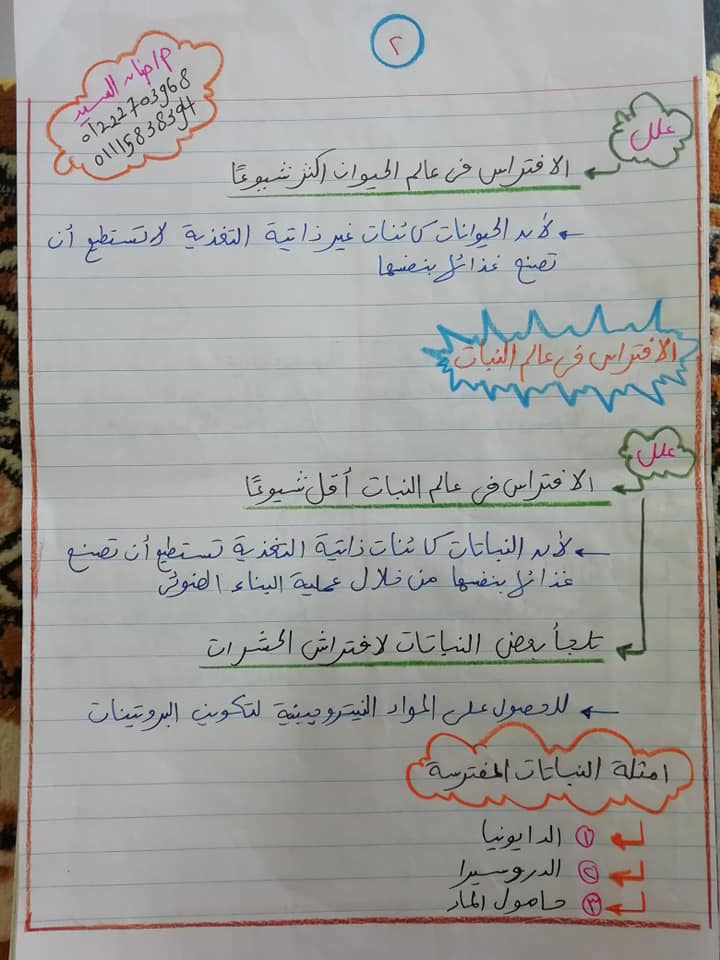 ٢
م/ حنان السيد
01222703968
01115838394
علل
الافتراس فى عالم الحيوان اكثر شيوعًا
لأن الحيوانات كائنات غير ذاتية التغذية لا تستطيع أن
تصنع غذائها بنفسها
الافتراس فى عالم النبات
علل
الافتراس فى عالم النبات أقل شيوعًا
لأن النباتات كائنات ذاتية التغذية تستطيع أن تصنع
غذائها بنفسها من خلال عملية البناء الضوئى
تلجأ بعض النباتات لافتراش الحشرات
للحصول على المواد النيتروجينية لتكوين البروتينات
امثلة النباتات المفترسة
① الدايونيا
② الدروسيرا
③ حامول الماء